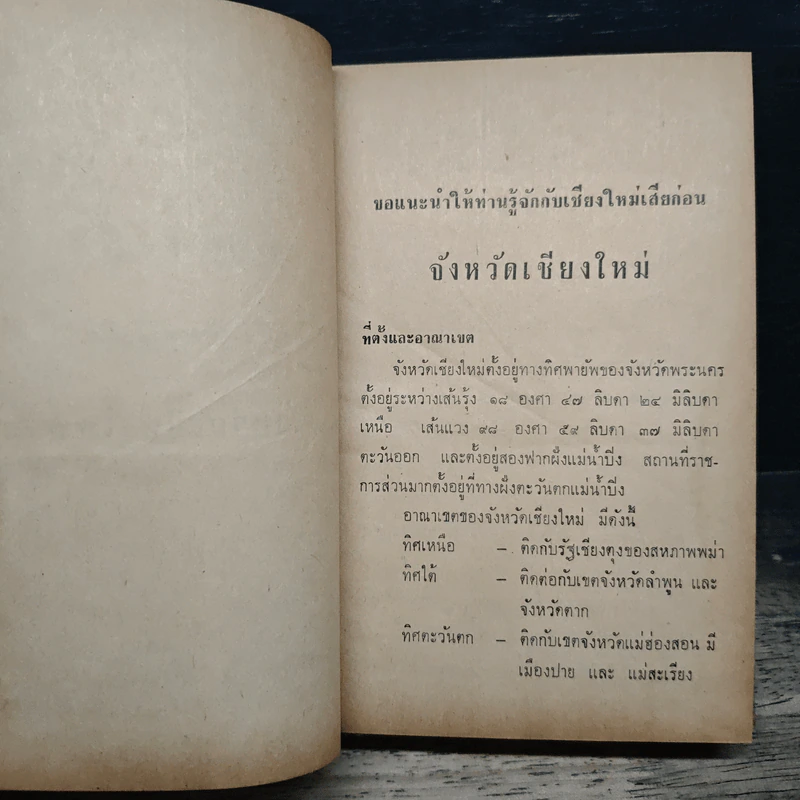 ขอแนะนำให้ท่านรู้จักกับเชียงใหม่เสียก่อน
จังหวัดเชียงใหม่
ที่ตั้งและอาณาเขต
จังหวัดเชียงใหม่ตั้งอยู่ทางทิศพายัพของจังหวัดพระนคร
ตั้งอยู่ระหว่างเส้นรุ้ง ๑๘ องศา ๔๗ ลิบดา ๒๔ มิลิบดา
เหนือ เส้นแวง ๙๘ องศา ๕๙ ลิบดา ๓๗ มิลิบดา
ตะวันออก และตั้งอยู่สองฟากฝั่งแม่น้ำปิง สถานที่ราช-
การส่วนมากตั้งอยู่ที่ทางฝั่งตะวันตกแม่น้ำปิง
อาณาเขตของจังหวัดเชียงใหม่ มีดังนี้
ทิศเหนือ – ติดกับรัฐเชียงตุงของสหภาพพม่า
ทิศใต้ – ติดต่อกับเขตจังหวัดลำพูน และ
จังหวัดตาก
ทิศตะวันตก – ติดกับเขตจังหวัดแม่ฮ่องสอน มี
เมืองปาย และ แม่สะเรียง